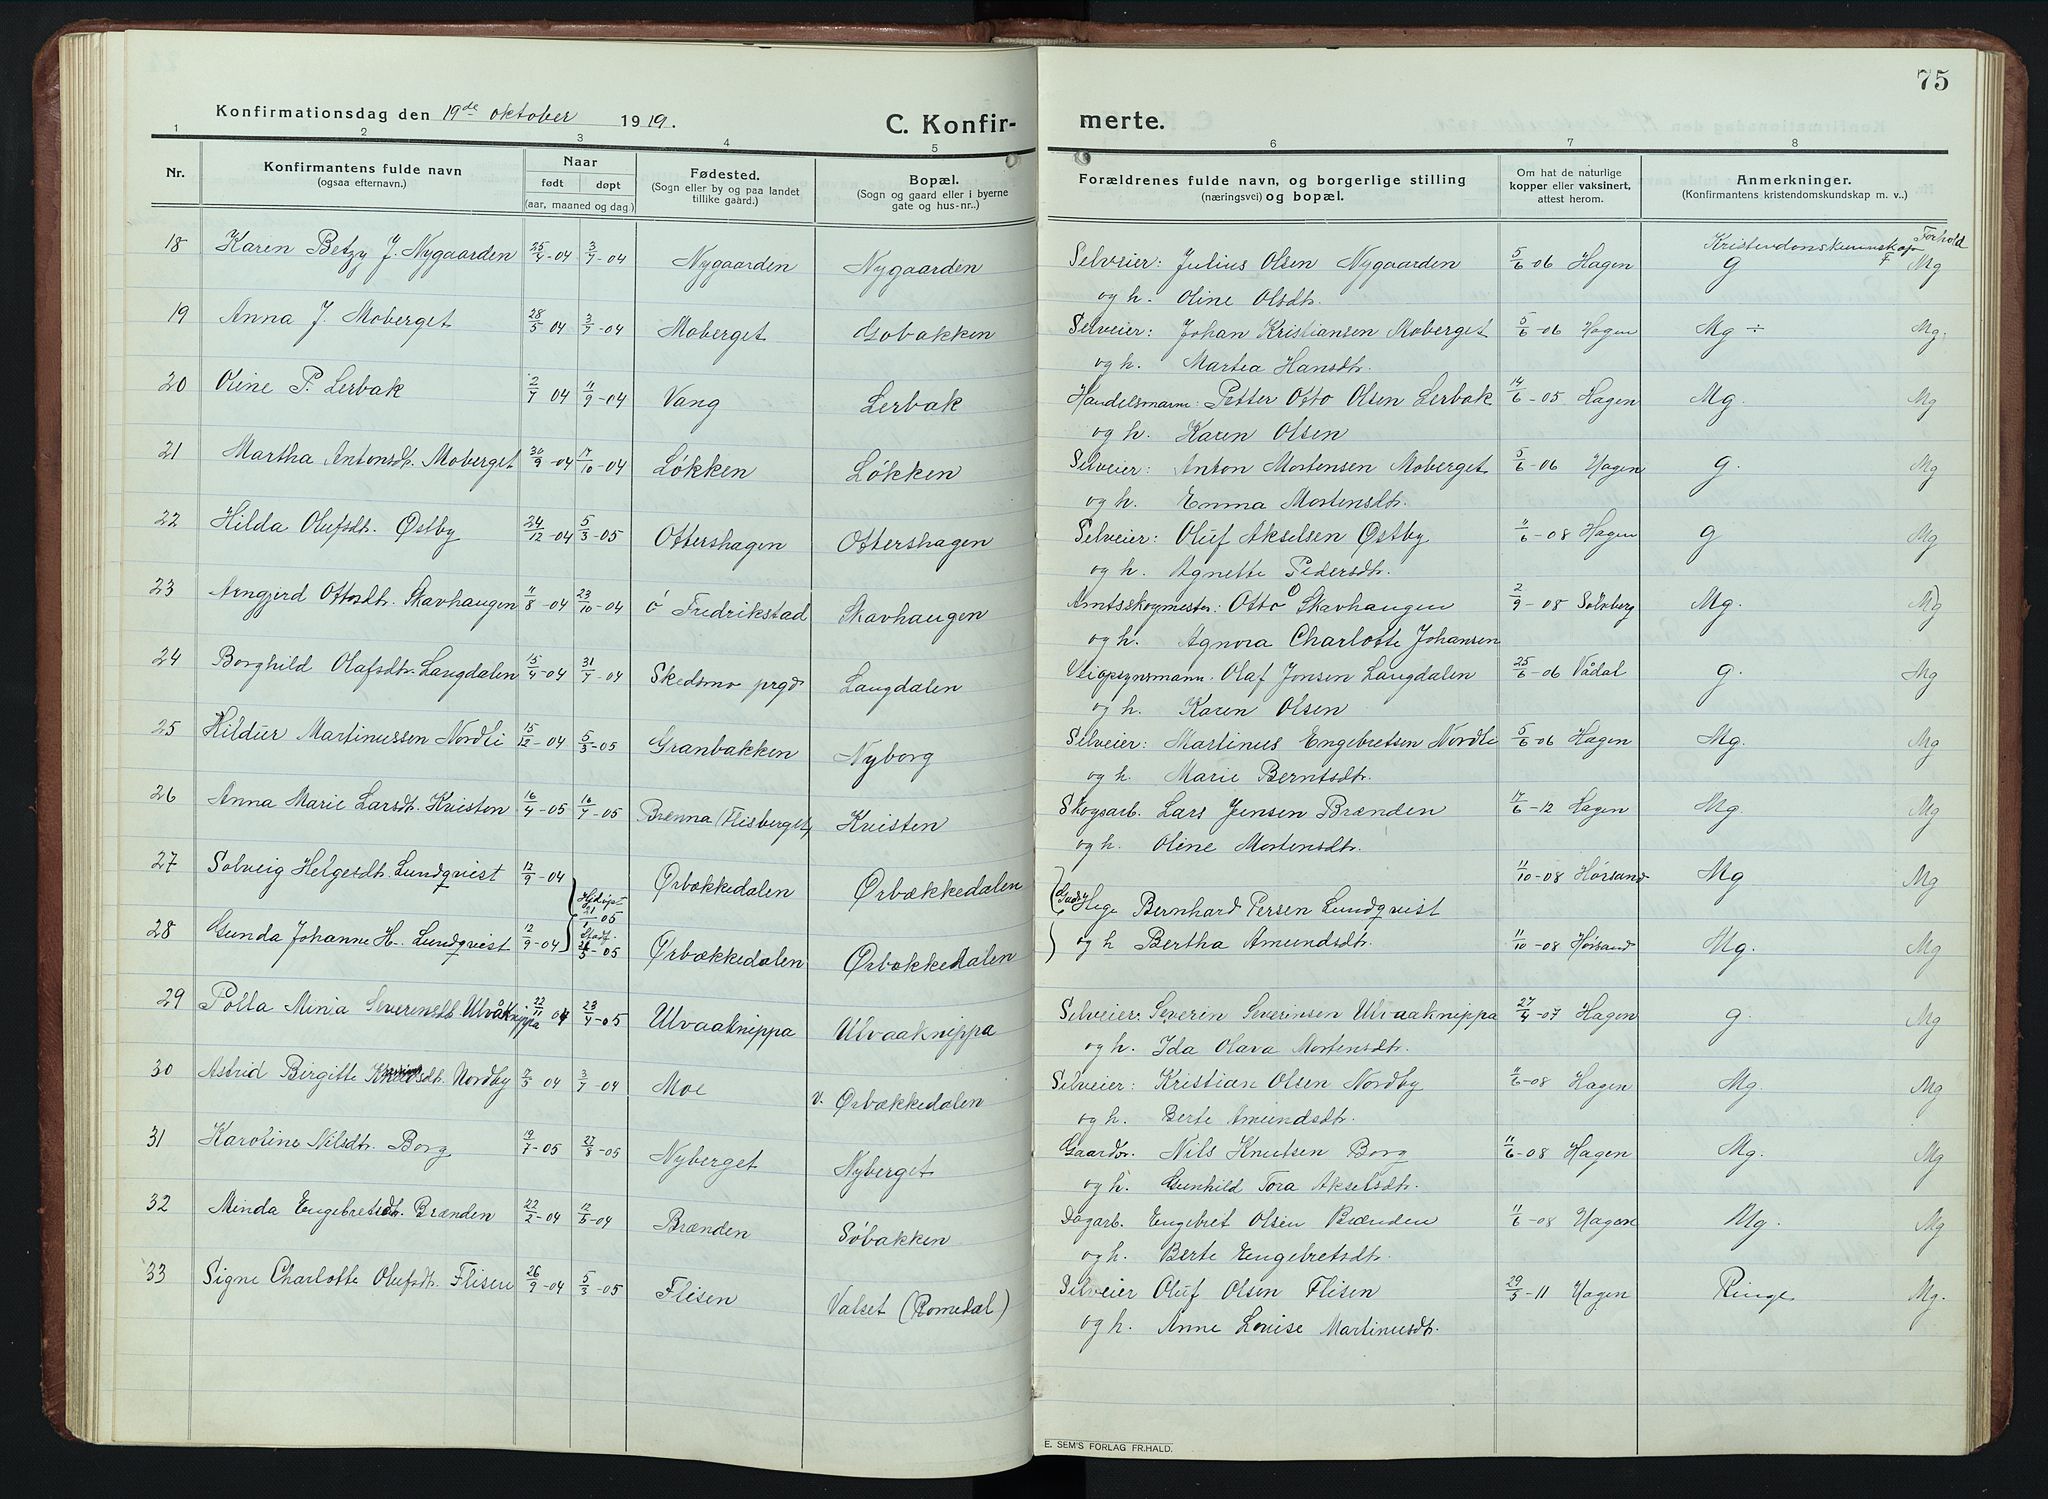 75
Konfirmationsdag den 19de oktober 1919.
C. Konfir-
merte.
1 2 3 4 5 6 7 8
Nr.
Konfirmantens fulde navn
(ogsaa efternavn.)
Naar
født døpt
(aar, maaned og dag)
Fødested.
(Sogn eller by og paa landet
tillike gaard.)
Bopæl.
(Sogn og gaard eller i byerne
gate og hus-nr..)
Forældrenes fulde navn, og borgerlige stilling
(næringsvei) og bopæl.
Om hat de naturlige
kopper eller vaksinert,
attest herom.
Anmerkninger.
(Konfirmantens kristendomskundskap m. v..)
Kristendomskunnskap Forhold
18 Karen Betzy J. Nygaarden 25/4-04 3/7-04 Nygaarden Nygaarden Selveier: Julius Olsen Nygaarden 5/6-06 Hagen g Mg
og h. Oline Olsdtr.
19 Anna J. Moberget 28/5 04 3/7-04 Moberget Gobakken Selveier: Johan Kristiansen Moberget 5/6-06 Hagen Mg ÷ Mg.
og h. Martea Hansdtr.
20 Oline P. Lerbak 2/7 04 11/9-04 Vang Lerbak Handelsmann: Petter Otto Olsen Lerbak 14/6-05 Hagen Mg. Mg
og h. Karen Olsen
21 Martha Antonsdtr. Moberget 30/9-04 17/10-04 Løkken Løkken Selveier: Anton Mortensen Moberget 5/6-06 Hagen g. Mg
og h. Emma Mortensdtr.
22 Hilda Olufsdtr. Østby 24/12-04 5/3-05 Ottershagen Ottershagen Selveier: Oluf Akselsen Østby 11/6-08 Hagen g Mg
og h. Agnette Pedersdtr.
23 Arngjerd Ottosdtr. Skavhaugen 11/8-04 23/10-04 Fredrikstad Skavhaugen Amtsskogmester: Otto O Skavhaugen 2/9-08 Solvberg Mg. Mg
og h. Agnora Charlotte Johansen
24 Borghild Olafsdtr. Langdalen 15/4-04 31/7-04 Skedsmo prgd Langdalen Veiopsynsmann. Olaf Jonsen Langdalen 25/6-06 Vådal g. Mg
og h. Karen Olsen
25 Hildur Martinussen Nordli 15/12-04 5/3-05 Granbakken Nyborg Selveier: Martinus Engebretsen Nordli 5/6-06 Hagen Mg. Mg
og h. Marie Berntsdtr.
26 Anna Marie Larsdtr. Kvisten 16/4-05 16/7-05 Brænna (Flisberget) Kvisten Skogsarb. Lars Jensen Brænden 17/6-12 Hagen Mg. Mg
og h. Oline Mortensdtr.
27 Solveig Helgesdtr. Lundqvist 12/9-04 Ørbækkedalen Ørbækkedalen 11/10-08 Hørsand Mg Mg
Helge Bernhard Persen Lundqvist
28 Gunda Johanne H. Lundqvist 12/9-04 Ørbækkedalen Ørbækkedalen og h Bertha Amundsdtr. 11/10-08 Hørsand Mg. Mg
29 Polla Minia Severensdtr Ulvåknippa 22/11 04 23/4-05 Ulvaaknippa Ulvaaknippa Selveier: Severin Severinsen Ulvaaknippa 27/4-07 Hagen g. Mg
og h. Ida Olava Mortensdtr.
30 Astrid Birgitte Nordby 7/5 04 3/7-04 Moe v. Ørbækkedalen Selveier: Kristian Olsen Nordby 11/6-08 Hagen Mg. Mg
og h. Berte Amundsdtr.
31 Karoline Nilsdtr. Borg 19/7-05 27/8-05 Nyberget Nyberget Gaardbr. Nils Knutsen Borg 11/6-08 Hagen Mg. Mg
og h. Gunhild Tora Akselsdtr.
32 Minda Engebretsdtr. Brænden 22/2-04 12/5-04 Brænden Søbakken Dagarb. Engebret Olsen Brænden 11/6-08 Hagen Mg. Mg
og h. Berte Engebretsdtr.
33 Signe Charlotte Olufsdtr. Flisen 26/9-04 5/3-05 Flisen Valset (Romedal) Selveier Oluf Olsen Flisen 29/5-11 Hagen Ringe Mg.
og h. Anne Louise Martinusdtr.
E. SEM'S FORLAG FR.HALD.